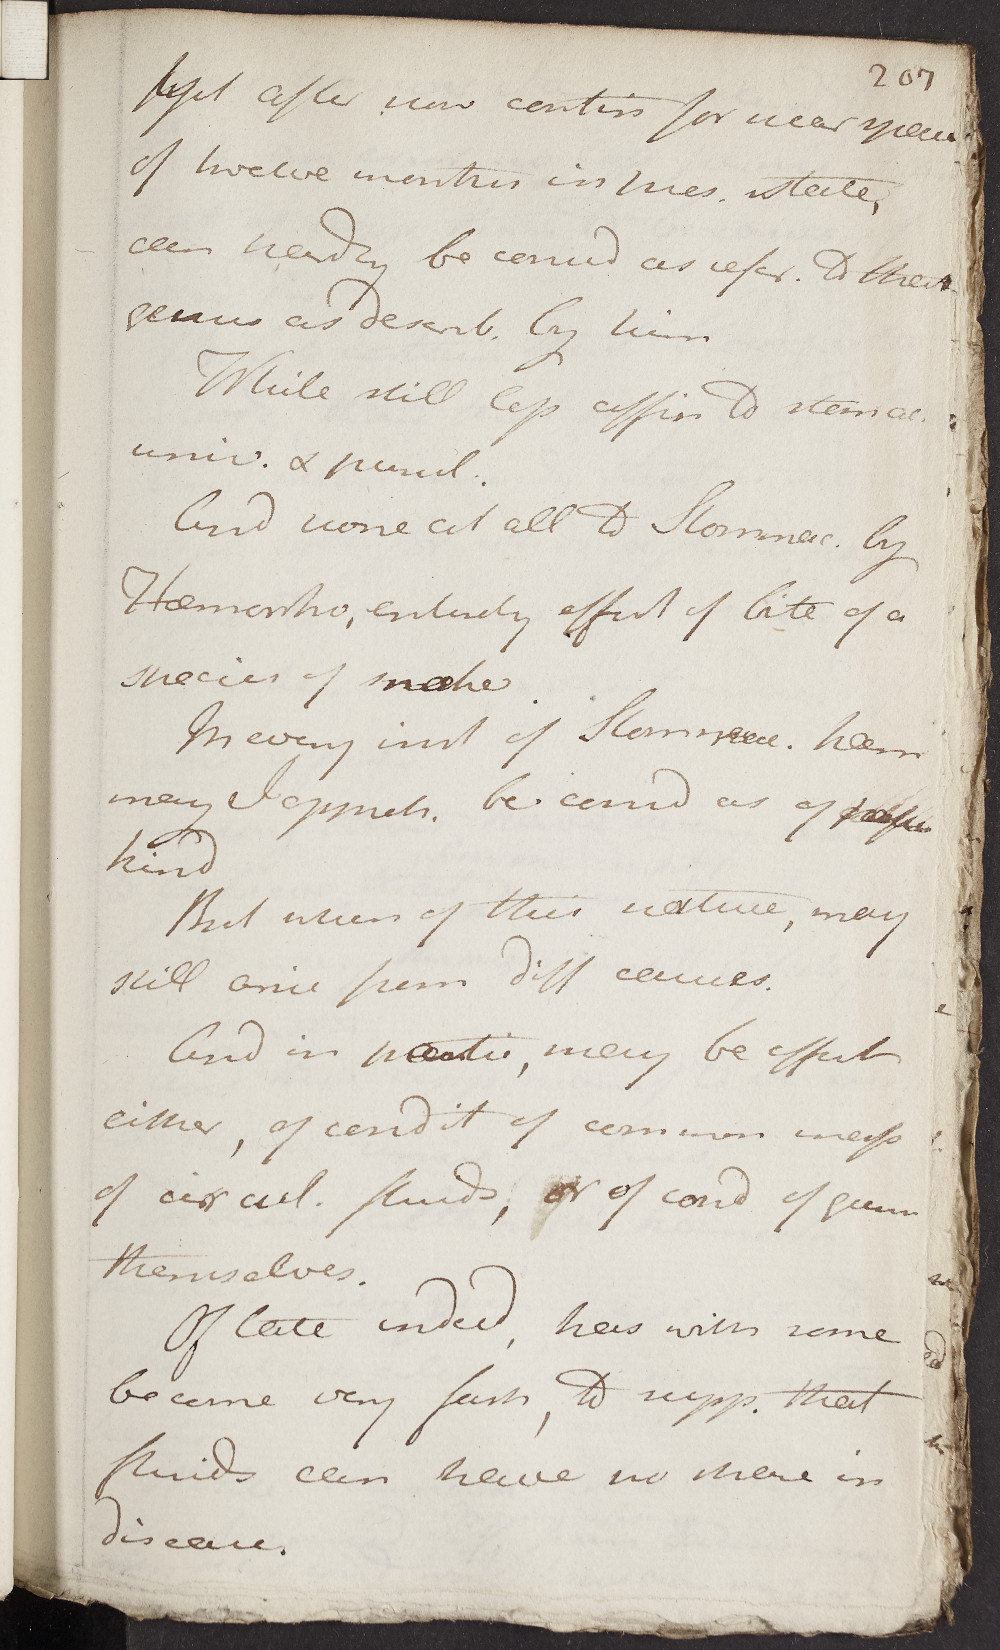 207
after now contin for near space
of twelve months in pres. state,
can hardly be consid as refer. to that
genus as describ. by him
While still less affin to stomac.
univ. & purul.
And none at all to Stommac. by
Hæmorrho, entirely effect of bite of a
species of snake.
In every inst of Stommac. hæm
may I appreh. be consid as of
kind
But when of this nature, may
still arise from diff causes.
And in partic, may be effect
either, of condit of common mass
of circul. fluids, or of cond of gums
themselves.
Of late indeed, has with some
become very fash, to supp. that
fluids can have no share in
disease.